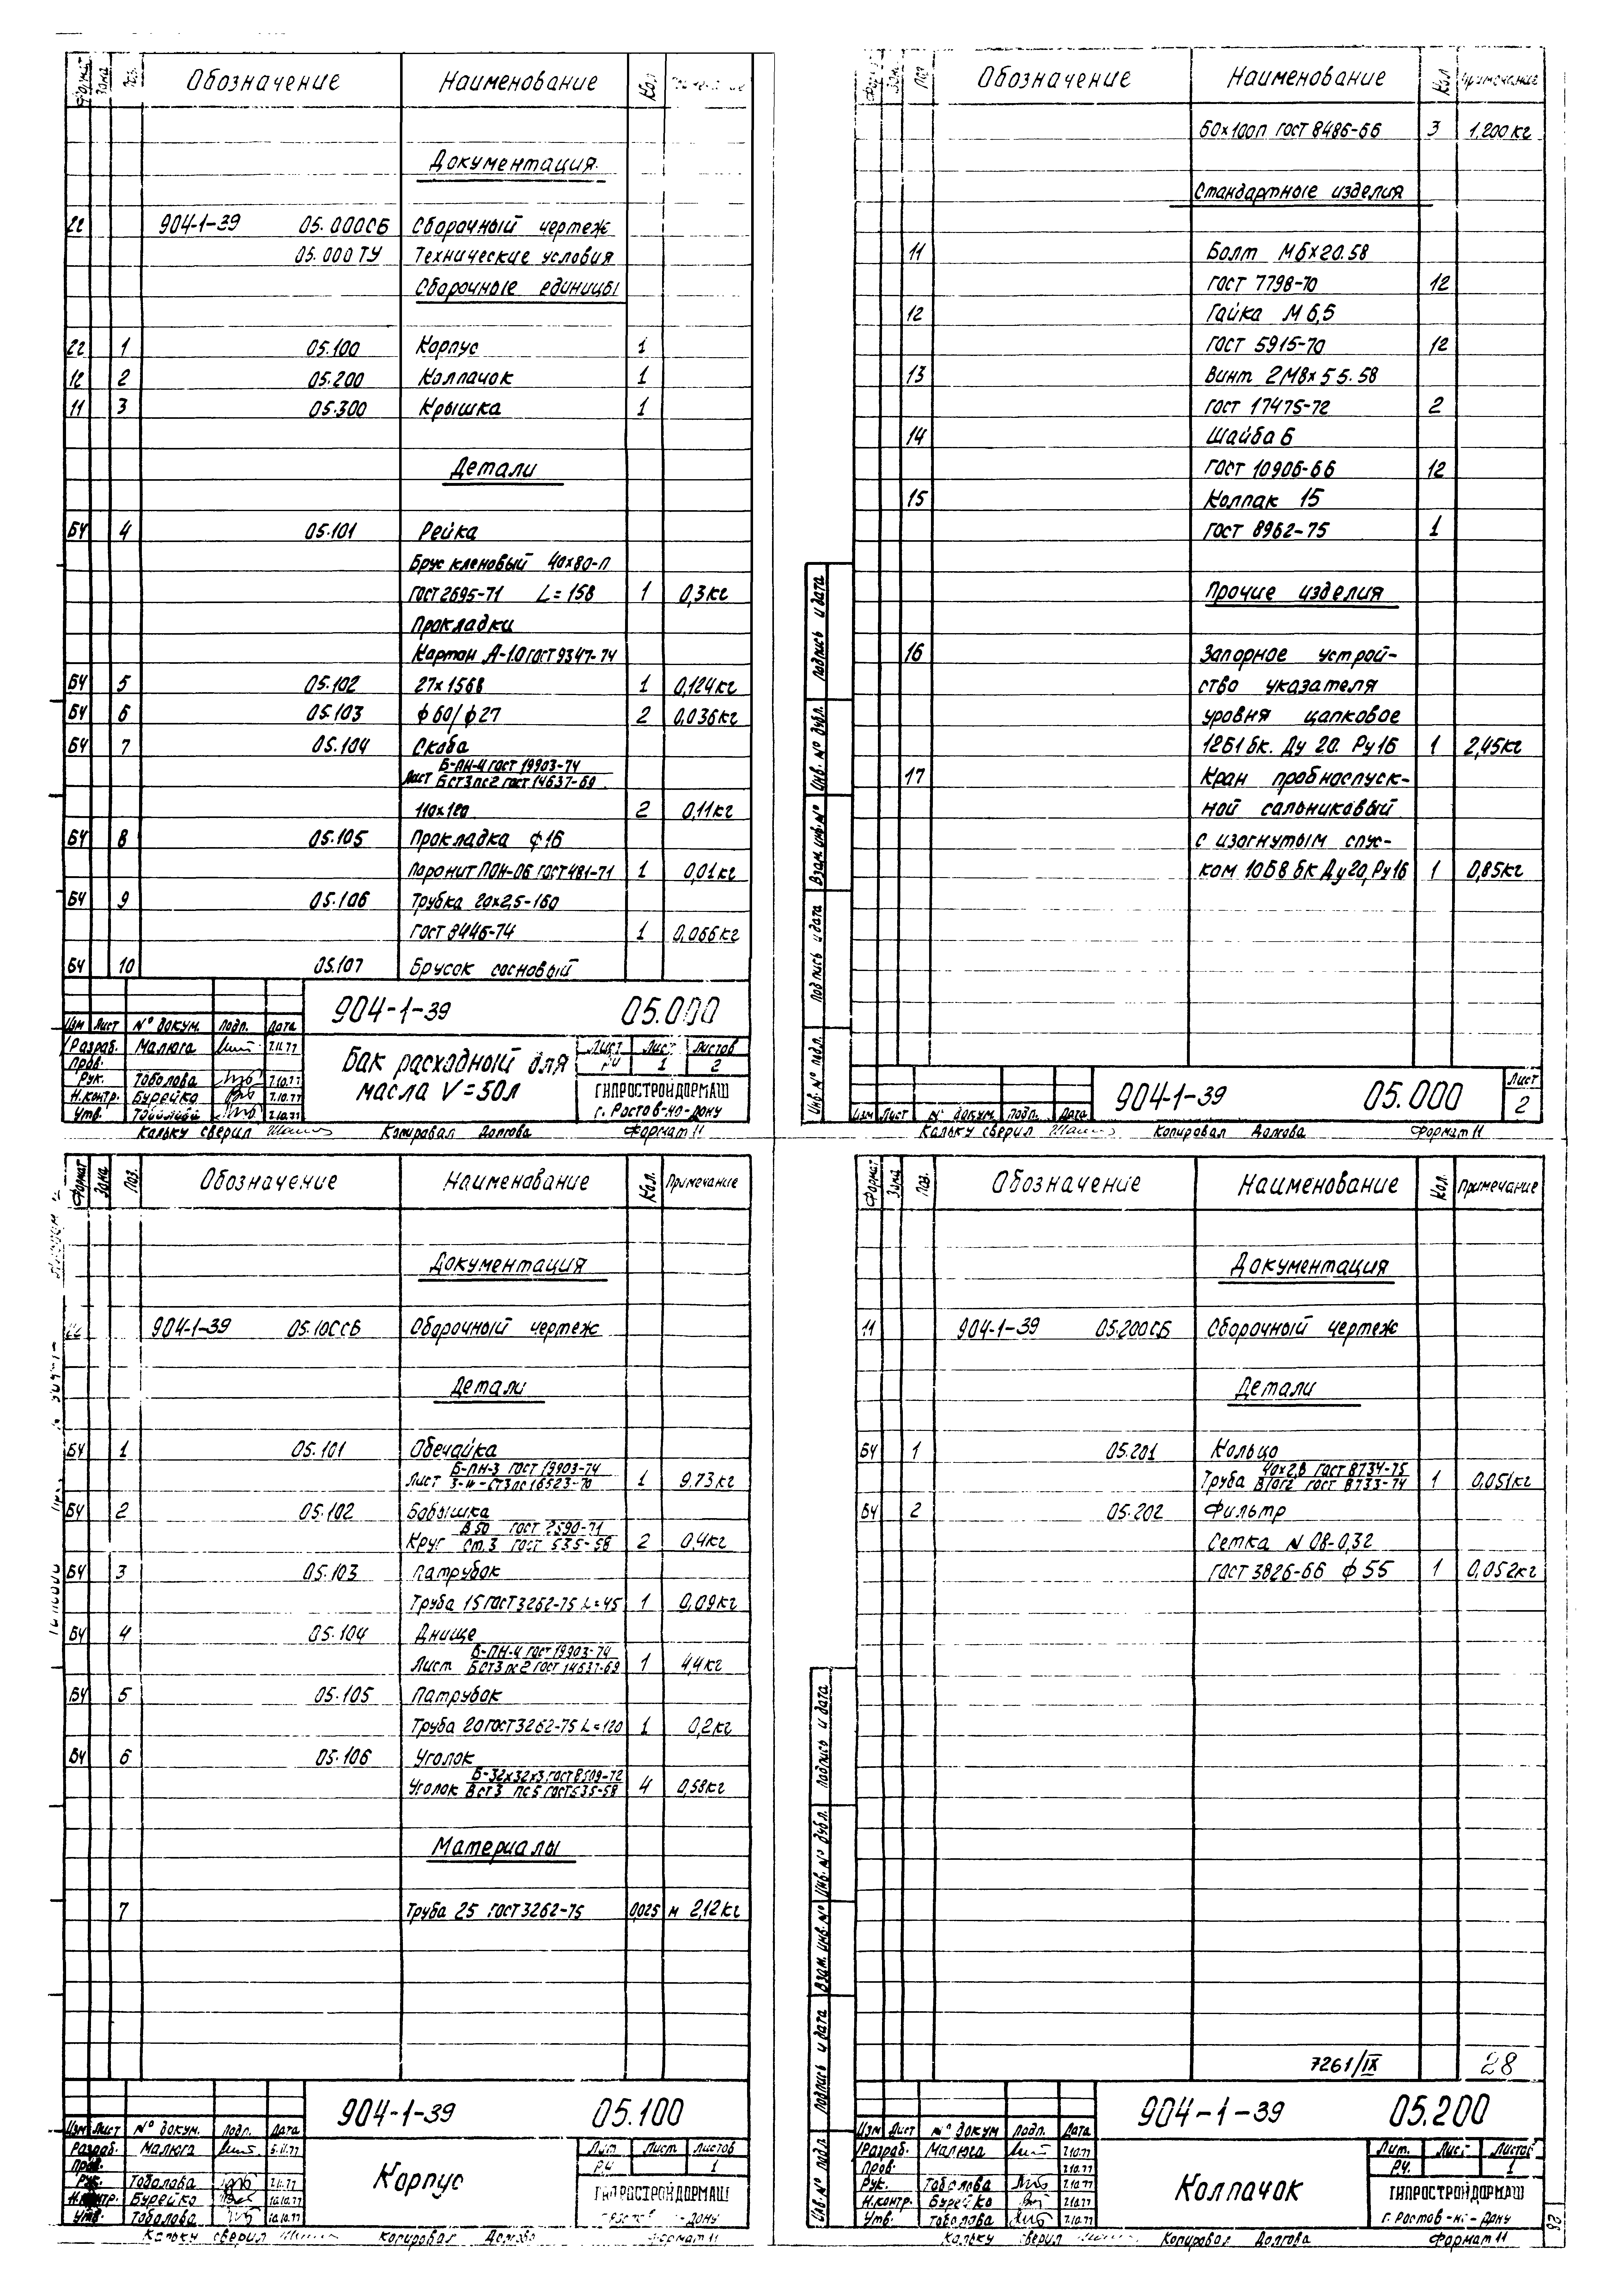 Формат Зона Поз. Обозначение Наименование Кол.
Документация
22 904-1-39 05.000СБ Сборочный чертеж
05.000 ТУ Технические условия
Сборочные единицы
22 1 05.100 Корпус 1
12 2 05.200 Колпачок 1
11 3 05.300 Крышка 1
Детали
БЧ 4 05.101 Рейка
Брус кленовый 40х80-П
ГОСТ 2695-71 L=158 1 0,3кг
Прокладки
Картон А-1.0 ГОСТ 9347-74
БЧ 5 05.102 27х1568 1 0,124кг
БЧ 6 05.103 ф60/ф27 2 0,036кг
БЧ 7 05.104 Скоба
Б-ПН-4 ГОСТ 19903-74
Лист БСт3пс2 ГОСТ 14637-69
110х120 2 0,11кг
БЧ 8 05.105 Прокладка ф16
Паронит ПОН-06 ГОСТ 481-71 1 0,01кг
БЧ 9 05.106 Трубка 20х2,5-160
1 0,066кг
БЧ 10 05.107 Брусок сосновый
904-1-39 05.000
Изм Лист № докум. Подп. Дата
Разраб. Малюга 7.11.77
Пров.
Рук. Тоболова 7.10.77
Н.контр. Бурейко 7.10.77
Утв. Тоболова 7.10.77
Бак расходный для
масла V=50л
Лист Листов
РЧ 1 2
ГИПРОСТРОЙДОРМАШ
г. Ростов-на-Дону
Кальку сверил Копировал Долгова Формат 11
Поз Обозначение Наименование Кол Примечание
60х100п ГОСТ 8486-66 3 1,200кг
Стандартные изделия
11 Болт М6х20.58
ГОСТ 7798-70 12
12 Гайка М6,5
ГОСТ 5915-70 12
13 Винт 2М8х55.58
ГОСТ 17475-72 2
14 Шайба 6
ГОСТ 10906-66 12
15 Колпак 15
ГОСТ 8962-75 1
Прочие изделия
16 Запорное устрой-
ство указателя
уровня цапковое
12Б1бк. Ду 20. Ру16 1 2,45кг
17 Кран пробноспуск-
ной сальниковый
с изогнутым спус-
ком 10Б8бк Ду20, Ру16 1 0,85кг
Подпись и дата
Инв. № дубл.
Взам. инв. №
Подпись и дата
Инв. № подл.
904-1-39 05.000
Лист
2
Изм Лист № докум. Подп. Дата
Кальку сверил Копировал Долгова Формат 11
Формат Зона Поз. Обозначение Наименование Кол. Примечание
Документация
904-1-39 05.100СБ Сборочный чертеж
Детали
БЧ 1 05.101 Обечайка
Б-ПН-3 ГОСТ 19903-74
Лист 1 9,73кг
БЧ 2 05.102 Бобышка
В50 ГОСТ 2590-71
Круг Ст.3 ГОСТ 535-58 2 0,4кг
БЧ 3 05.103 Патрубок
Труба 15 ГОСТ 3262-75 L=45 1 0,09кг
БЧ 4 05.104 Днище
Б-ПН-4 ГОСТ 19903-74
Лист БСт3пс2 ГОСТ 14637-69 1 4,4кг
БЧ 5 05.105 Патрубок
Труба 20 ГОСТ 3262-75 L=120 1 0,2кг
БЧ 6 05.106 Уголок
Б-32х32х3 ГОСТ 8509-72
Уголок ВСт3 пс5 ГОСТ 535-58 4 0,58кг
Материалы
7 Труба 25 ГОСТ 3262-75 0,025 м 2,12кг
904-1-39 05.100
Изм Лист № докум. Подп. Дата
Разраб. Малюга 5.11.77
Пров.
Рук. Тоболова
Н.контр. Бурейко 10.10.77
Утв. Тоболова 10.10.77
Корпус
Лит Лист Листов
РЧ 1
ГИПРОСТРОЙДОРМАШ
Кальку сверил Копировал Долгова Формат 11
Формат Зона Поз. Обозначение Наименование Кол. Примечание
Документация
11 904-1-39 05.200СБ Сборочный чертеж
Детали
БЧ 1 05.201 Кольцо
40х2,8 ГОСТ 8734-75
Труба В10г2 ГОСТ 8733-74 1 0,051кг
БЧ 2 05.202 Фильтр
Сетка N 08-0,32
ГОСТ 3826-66 ф55 1 0,052кг
Подпись и дата
Инв. № дубл.
Взам. инв. №
Подпись и дата
Инв. № подл.
7261/IX 28
904-1-39 05.200
Изм Лист № докум Подп. Дата
Разраб. Малюга 7.10.77
Пров. 7.10.77
Рук. Тоболова 7.10.77
Н.контр. Бурейко 7.10.77
Утв. Тоболова 7.10.77
Колпачок
Лит. Лист Листов
РЧ. 1
ГИПРОСТРОЙДОРМАШ
г. Ростов-на-Дону
Кальку сверил Копировал Долгова Формат 11